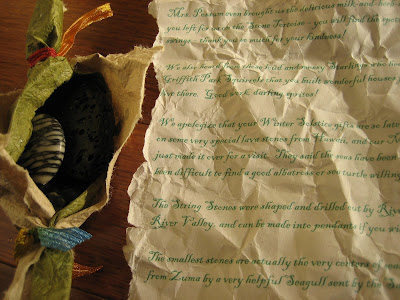 Mrs. Persimmon brought us the delicious milk and
you left for us on the Stone Tortoise - you will find the
swings - thank you so much for your kindness!
We also heard from those loud and sassy Starlings
Griffith Park Squirrels that you built wonderful houses
live there. Good work, darling sprites!
We apologize that your Winter Solstice gifts are so late
on some very special lava stones from Hawaii, and our
just made it over for a visit. They said the seas have been
been difficult to find a good albatross or sea turtle willing
The String Stones were shaped and drilled out by
River Valley, and can be made into pendants if you
The smallest stones are actually the very centers of
from Zuma by a very helpful Seagull sent by the